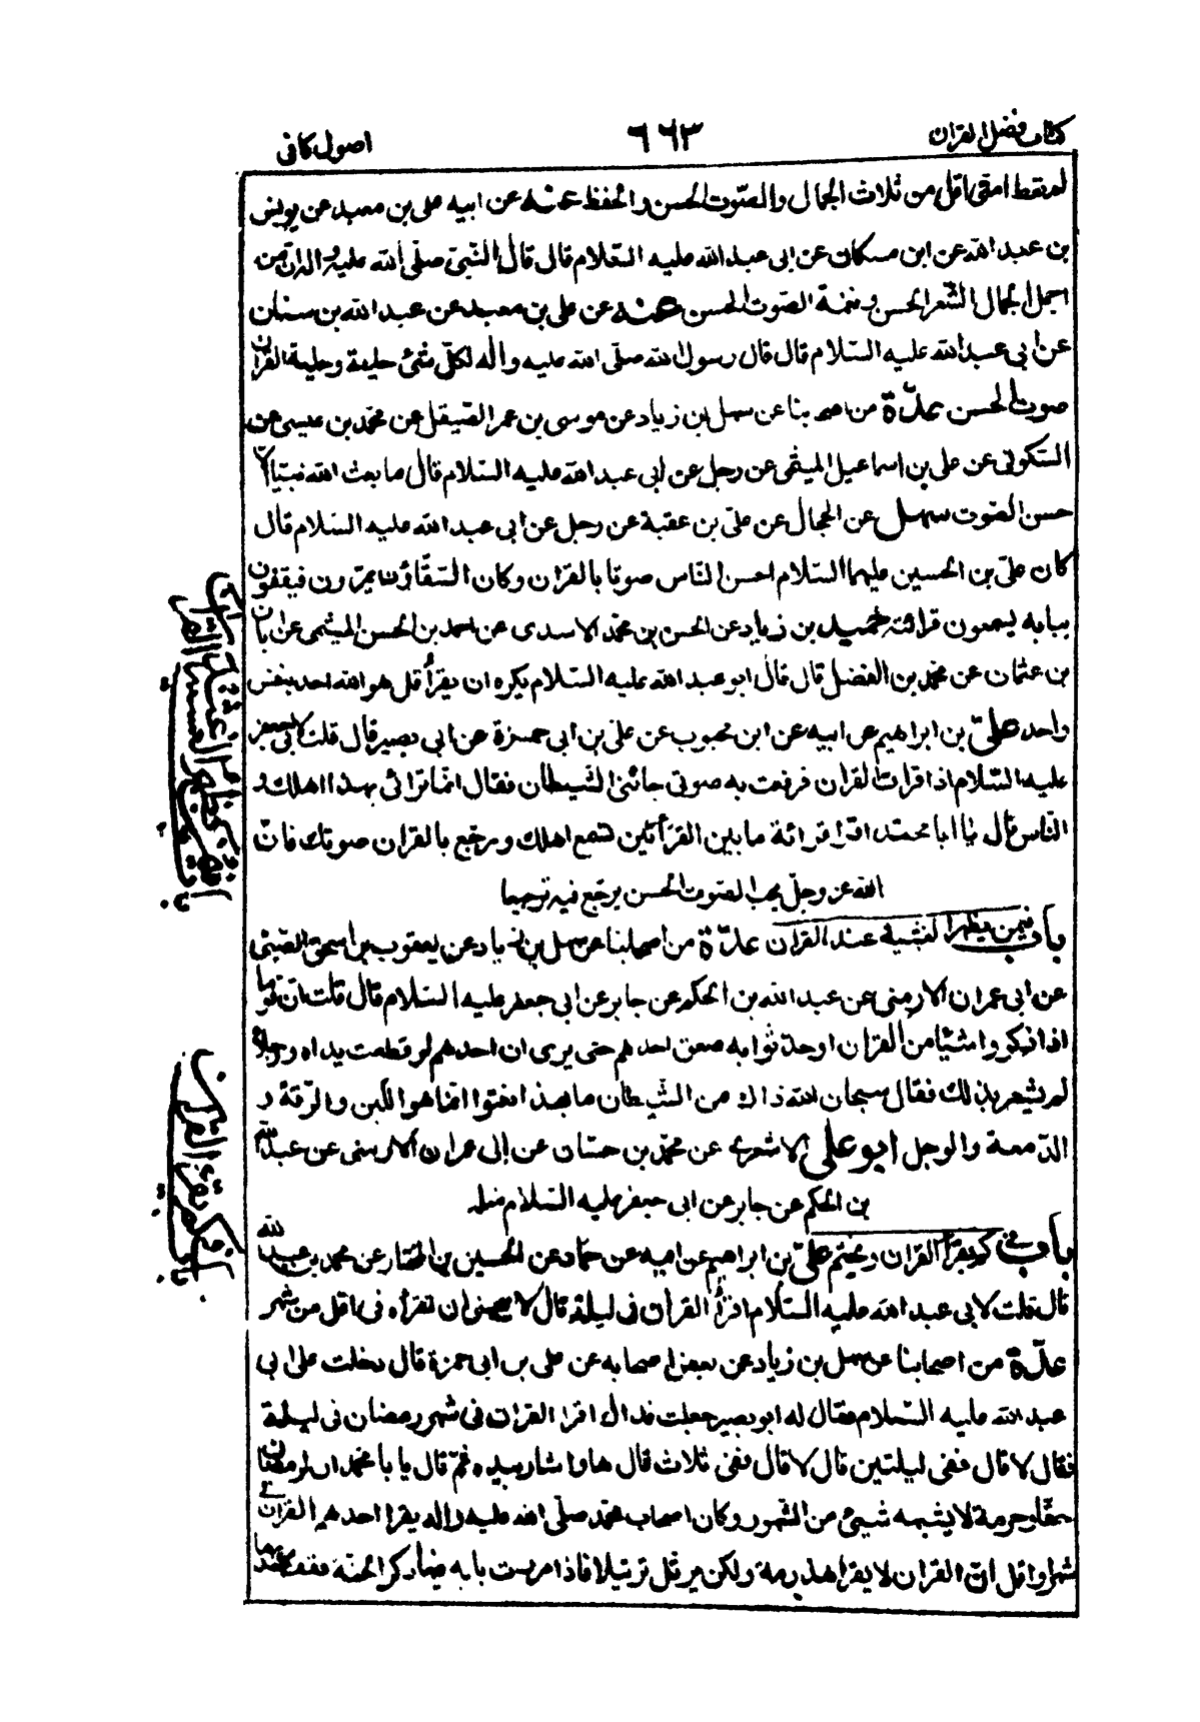 كتاب فضل القران
٦٦٣
اصول كافى
لم يقط امتى اقل من ثلاث الجمال والصّوت الحسن والحفظ عنه عن ابيه على بن معبد عن يونس
بن عبد الله عن ابن مسكان عن ابى عبد الله عليه السّلام قال قال النّبىّ صلّى الله عليه واله انّ من
اجمل الجمال الشّعر الحسن ونغمة الصّوت الحسن عنه عن على بن معبد عن عبد الله بن سنان
عن ابى عبد الله عليه السّلام قال قال رسول الله صلّى الله عليه واله لكلّ شئ حلية وحلية القران
صوت الحسن عدّة من اصحابنا عن سهل بن زياد عن موسى بن عمر الصّيقل عن محمّد بن عيسى عن
السّكونى عن على بن اسماعيل الميثمى عن رجل عن ابى عبد الله عليه السّلام قال ما بعث الله نبيّا الّا
حسن الصّوت سهل عن الحجال عن علىّ بن عقبة عن رجل عن ابى عبد الله عليه السّلام قال
كان علىّ بن الحسين عليهما السّلام احسن النّاس صوتا بالقران وكان السّقّاؤن يمرّون فيقفون
ببابه يسمعون قرائته حميد بن زياد عن الحسن بن محمّد الاسدى عن احمد بن الحسن الميثمى عن ابان
بن عثمان عن محمّد بن الفضل قال قال ابو عبد الله عليه السّلام يكره ان يقرأ قل هو الله احد بنفس
واحد علىّ بن ابراهيم عن ابيه عن ابن محبوب عن على بن ابى حمزة عن ابى بصير قال قلت لابى جعفر
عليه السّلام اذا قرات القران فرفعت به صوتى جائنى الشّيطان فقال انّما ترائى بهذا اهلك و
النّاس قال يا ابا محمّد اقرا قرائة ما بين القرأتين تسمع اهلك ورجّع بالقران صوتك فانّ
الله عزّ وجلّ يحبّ الصّوت الحسن يرجّع فيه ترجيعا
باب فيمن يظهر الغشية عند القران عدّة من اصحابنا عن سهل بن زياد عن يعقوب بن اسحق الضّبّى
عن ابى عمران الارمنى عن عبد الله بن الحكم عن جابر عن ابى جعفر عليه السّلام قال قلت انّ قوما
اذا ذكروا شيئا من القران او حدّثوا به صعق احدهم حتى يرى ان احدهم لو قطعت يداه ورجلاه
لم يشعر بذلك فقال سبحان الله ذاك من الشّيطان ما بهذا نعتوا انّما هو اللّين والرّقّة و
الدّمعة والوجل ابو على الاشعرى عن محمّد بن حسّان عن ابى عمران الارمنى عن عبد الله
بن الحكم عن جابر عن ابى جعفر عليه السّلام مثله
باب فى كم يقرأ القران ويختم علىّ بن ابراهيم عن ابيه عن حمّاد عن الحسين بن المختار عن محمد بن عبد الله
قال قلت لابى عبد الله عليه السّلام اقرأ القران فى ليلة قال لا يعجبنى ان تقرأه فى اقل من شهر
عدّة من اصحابنا عن سهل بن زياد عن بعض اصحابه عن على بن ابى حمزة قال دخلت على ابى
عبد الله عليه السّلام فقال له ابو بصير جعلت فداك اقرا القران فى شهر رمضان فى ليلة
فقال لا قال ففى ليلتين قال لا قال ففى ثلاث قال ها واشار بيده ثمّ قال يا با محمّد ان لرمضان
حقّا وحرمة لا يشبهه شيئ من الشّهور وكان اصحاب محمّد صلّى الله عليه واله يقرا احدهم القران فى
شهر او اقل انّ القران لا يقرا هذرمة ولكن يرتّل ترتيلا فاذا مررت باية فيها ذكر الجنّة فقف عندها